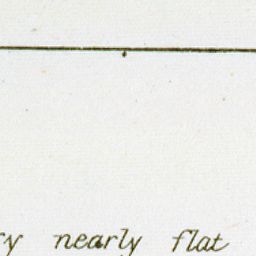 nearly flat